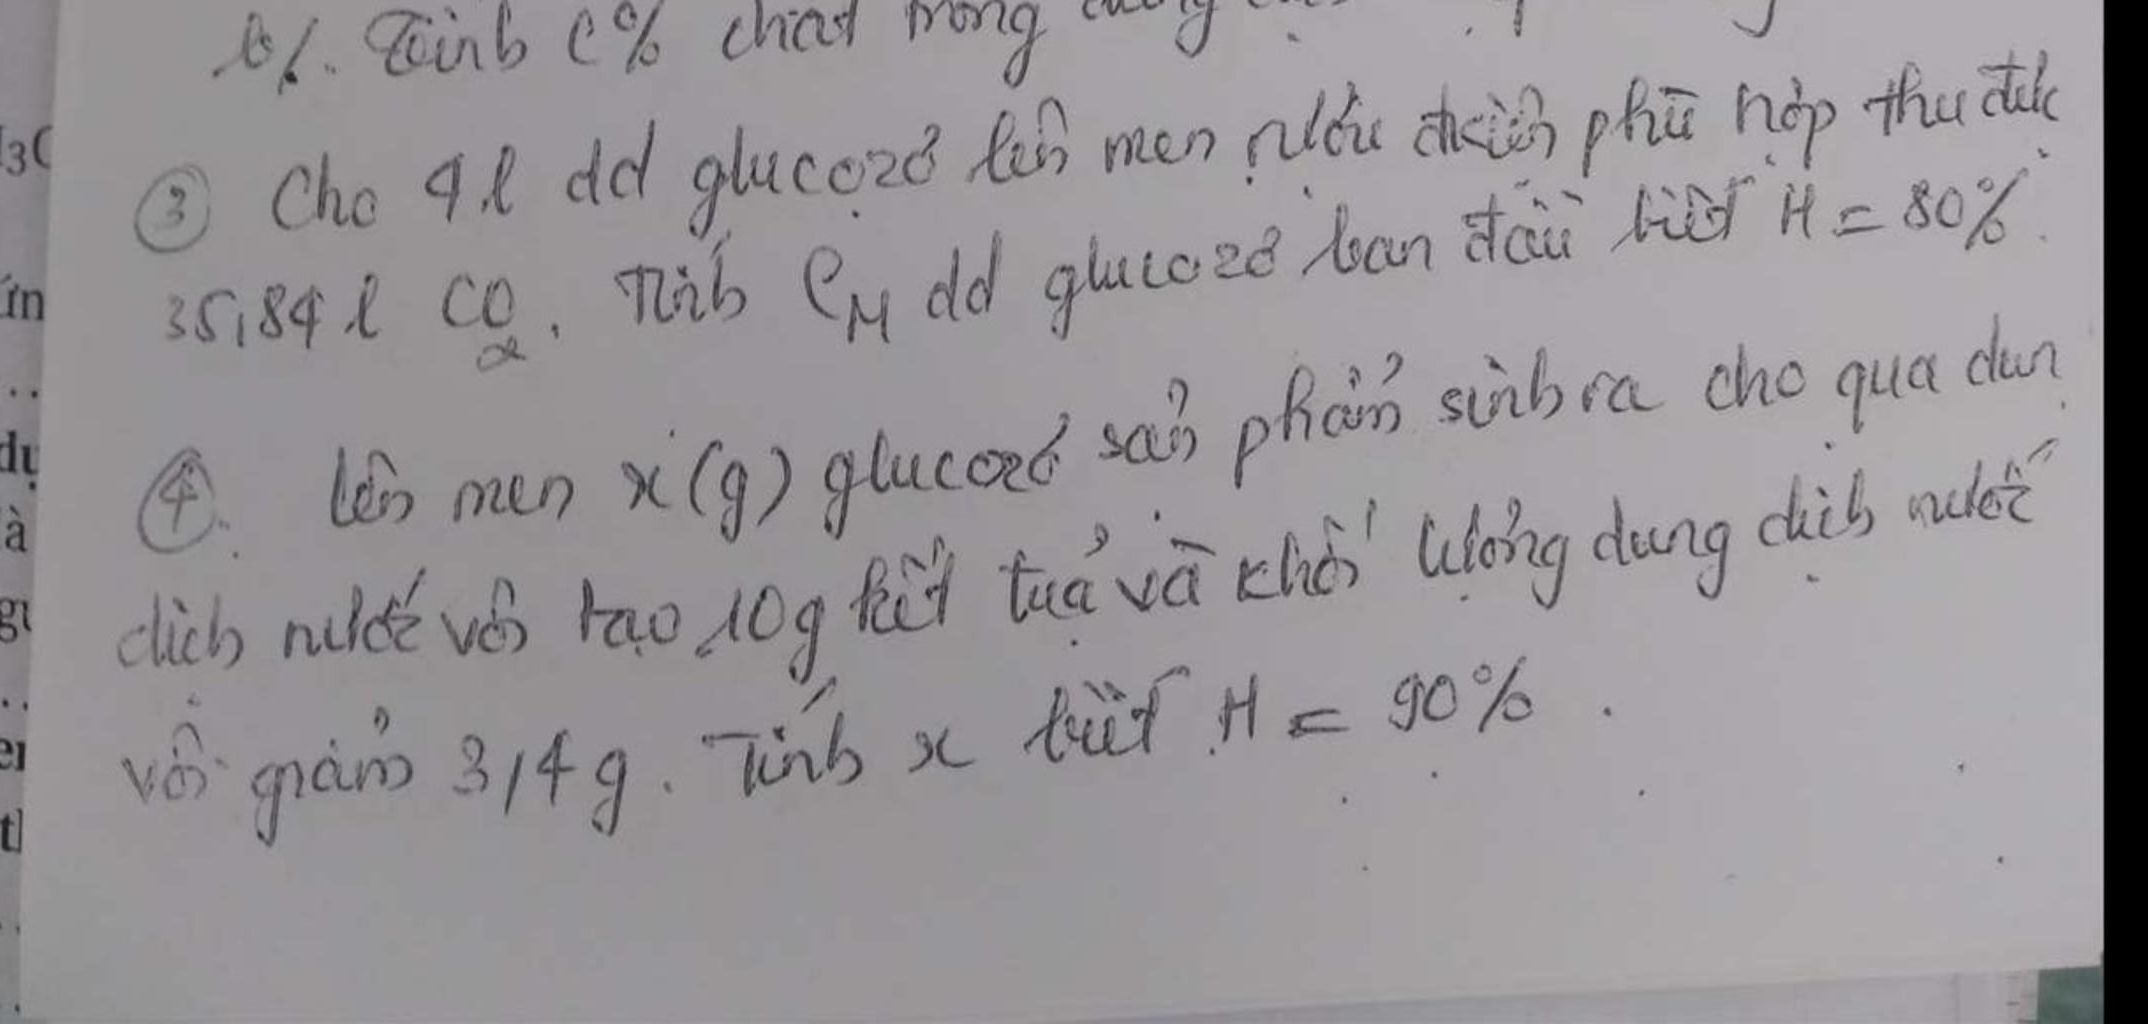 b/. Tính C% chất trong
③ Cho 4 l dd glucozơ lên men rượu thích phù hợp thu đưc
35,84 l CO2. Tính CM dd glucozơ ban đầu biết H = 80%.
④. lên men x (g) glucozơ sản phẩm sinh ra cho qua dun
dịch nước vôi tạo 10g kết tủa và khối lượng dung dịch nước
vôi giảm 3,4 g. Tính x biết H = 90%.
3C
ín
..
dụ
à
gu
..
er